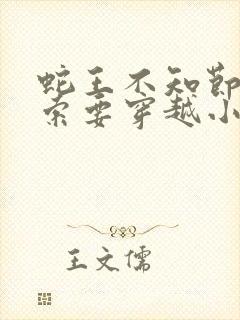 蛇王不知节
索要穿越小
王文儒